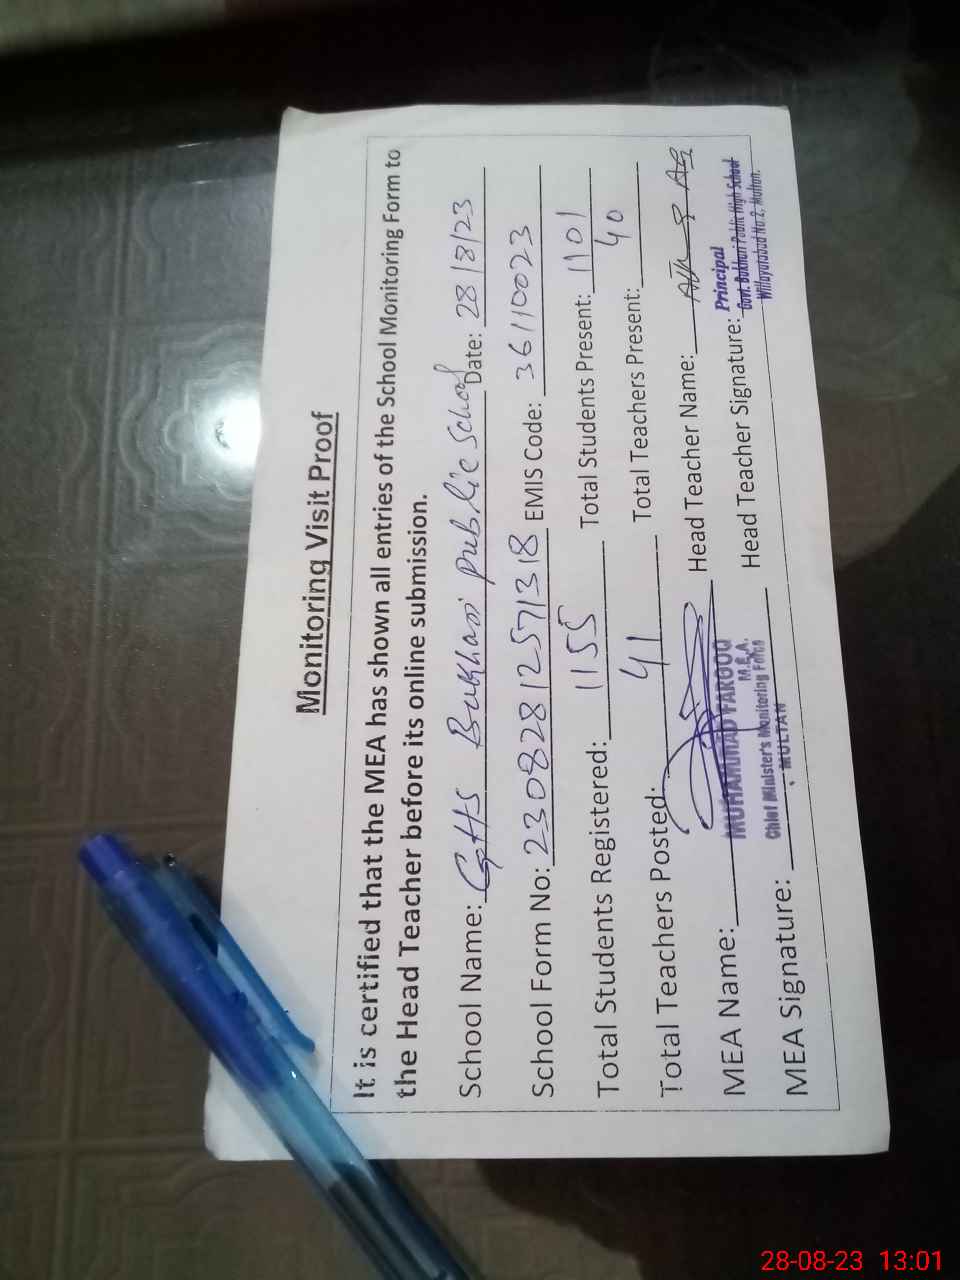 Monitoring Visit Proof
It is certified that the MEA has shown all entries of the School Monitoring Form to
the Head Teacher before its online submission.
School Name: GHS Bukhari public School Date: 28/8/23
School Form No: 23082812571318 EMIS Code: 36110023
Total Students Registered: 1155 Total Students Present: 1101
Total Teachers Posted: 41 Total Teachers Present: 40
MEA Name: MUHAMMAD FAROOQ Head Teacher Name:
M.E.A.
Chief Minister's Monitoring Force
MULTAN
MEA Signature: Head Teacher Signature:
Principal
Govt. Bukhari Public High School
Willayatabad No 2, Multan.
28-08-23 13:01